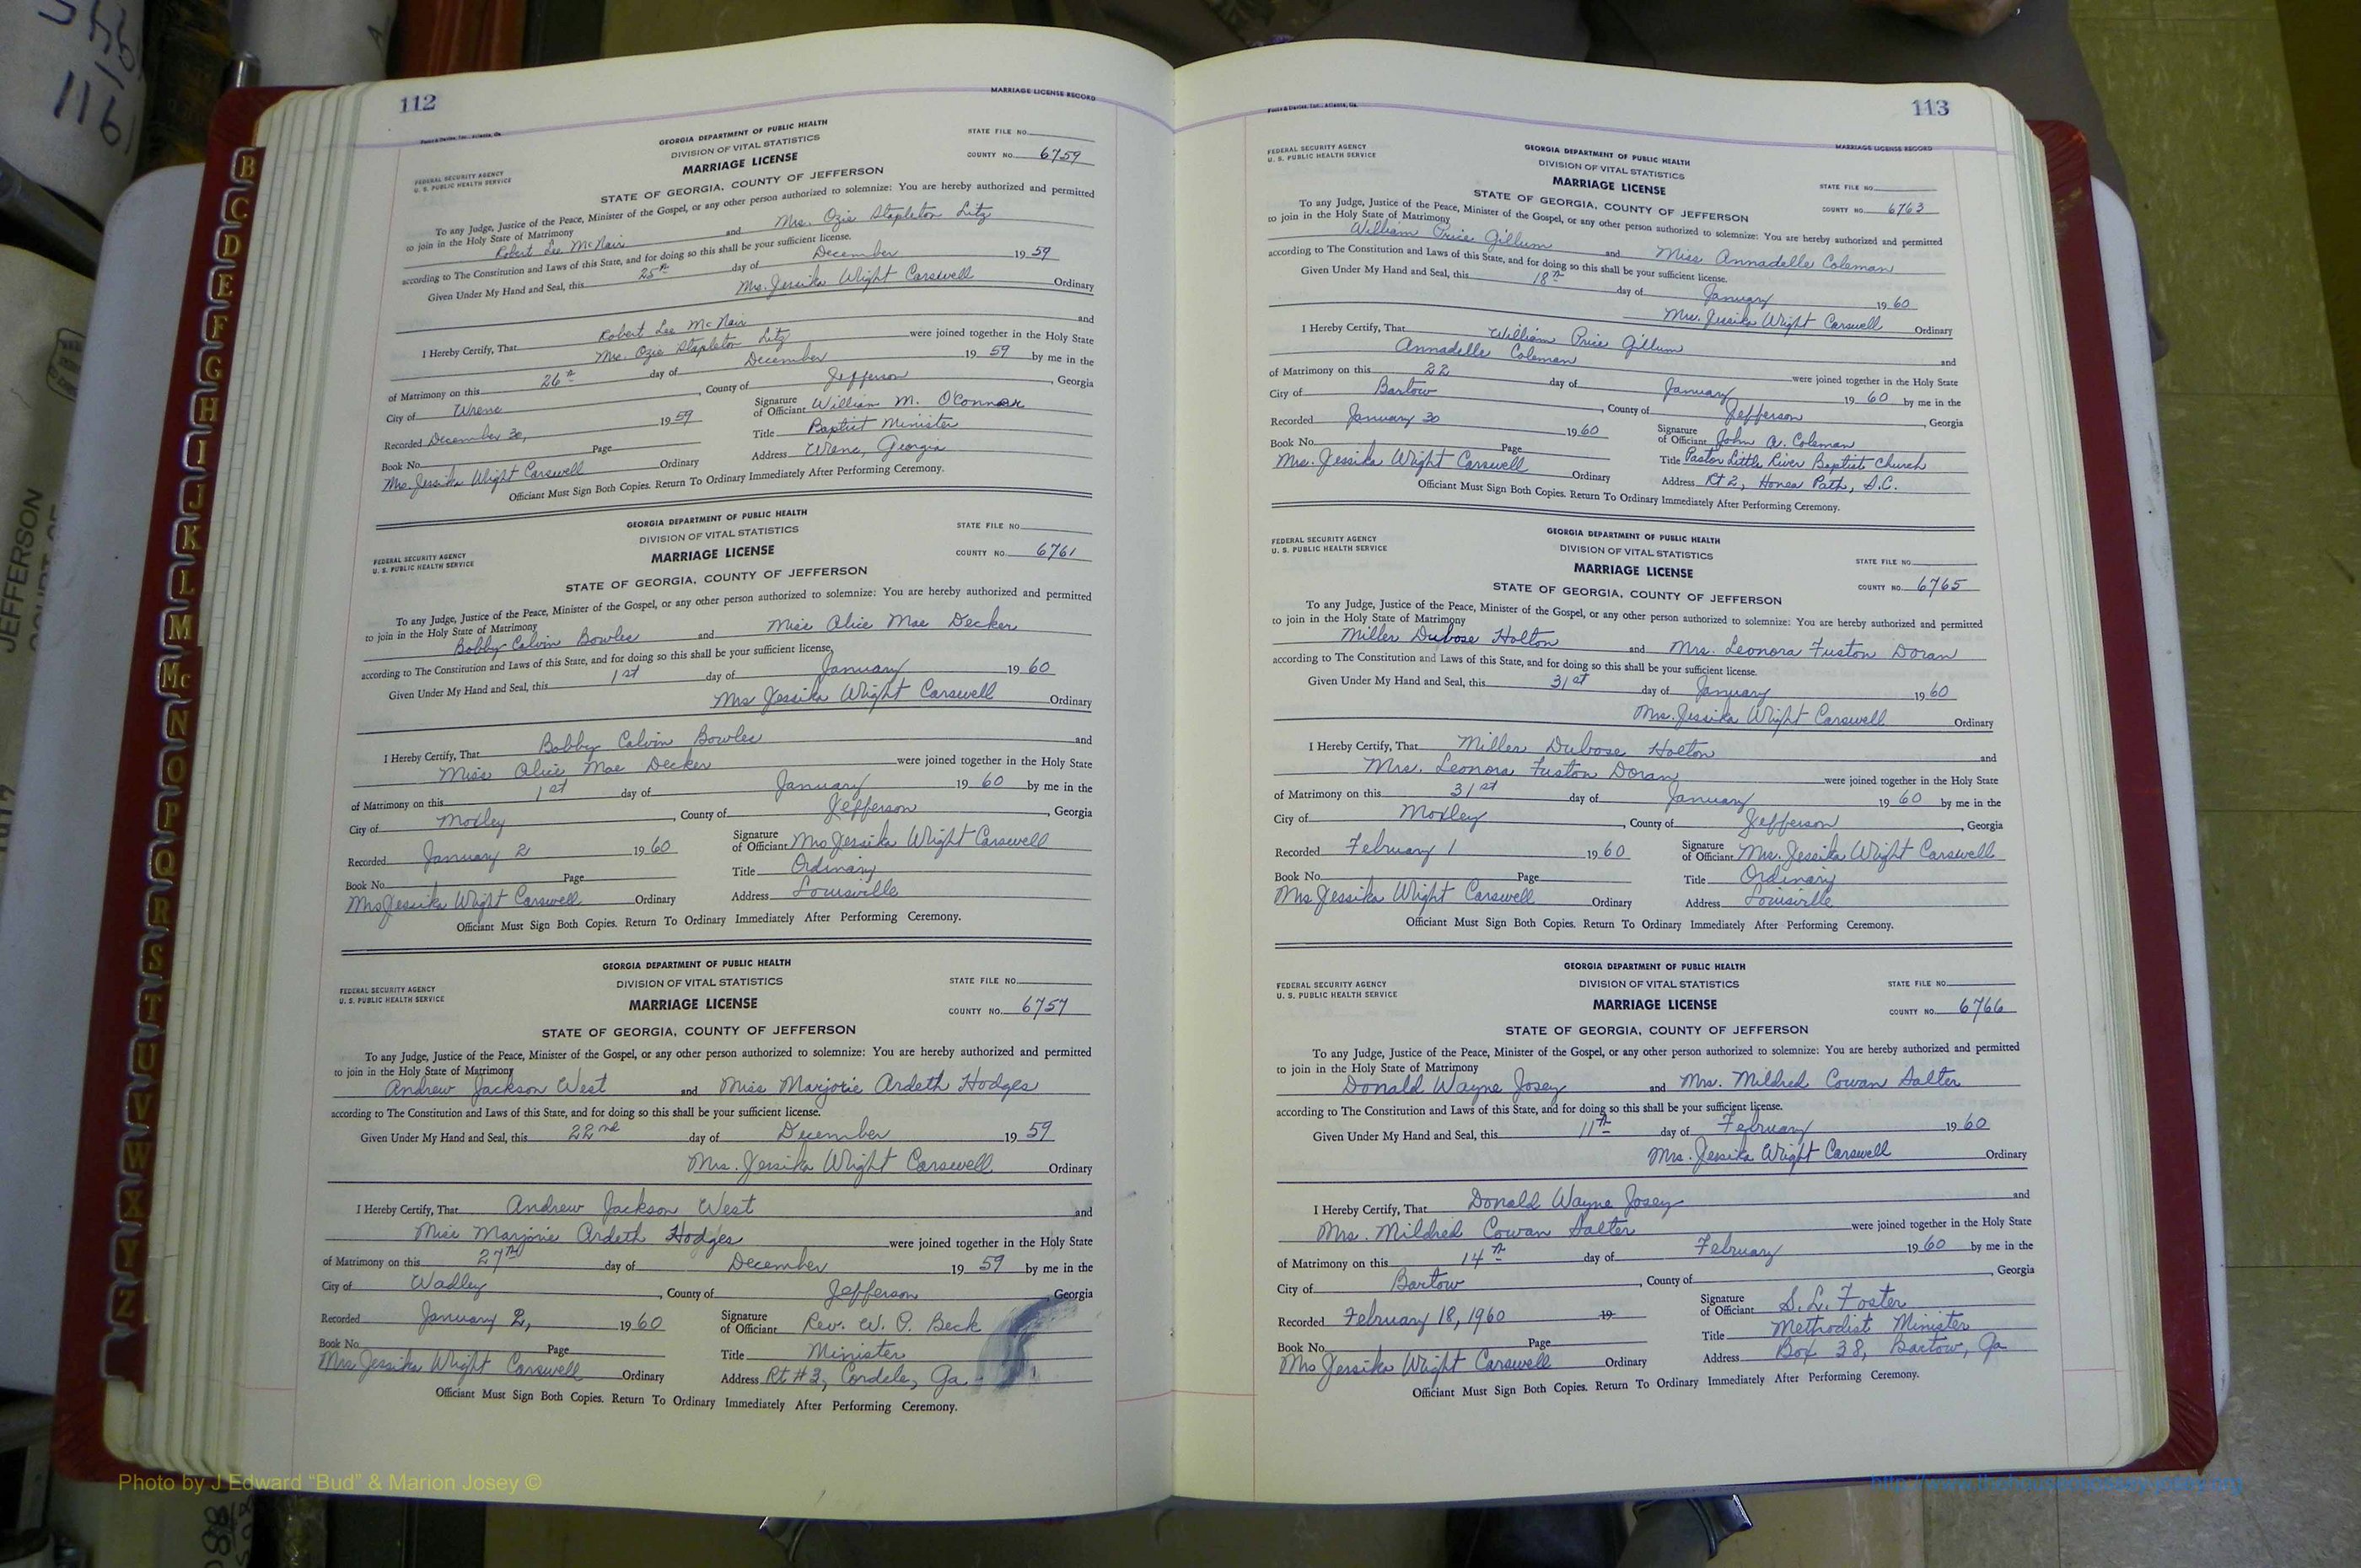 112
MARRIAGE LICENSE RECORD
Foote & Davies, Inc., Atlanta, Ga.
GEORGIA DEPARTMENT OF PUBLIC HEALTH
DIVISION OF VITAL STATISTICS
MARRIAGE LICENSE
STATE FILE NO.
COUNTY NO. 6759
FEDERAL SECURITY AGENCY
U. S. PUBLIC HEALTH SERVICE
STATE OF GEORGIA, COUNTY OF JEFFERSON
To any Judge, Justice of the Peace, Minister of the Gospel, or any other person authorized to solemnize: You are hereby authorized and permitted
to join in the Holy State of Matrimony
Robert Lee McNair and Mrs. Ozie Stapleton Litz
according to The Constitution and Laws of this State, and for doing so this shall be your sufficient license.
Given Under My Hand and Seal, this 25th day of December 19 59
Mrs. Jessika Wright Carswell Ordinary
I Hereby Certify, That Robert Lee McNair and
Mrs. Ozie Stapleton Litz were joined together in the Holy State
of Matrimony on this 26th day of December 19 59 by me in the
City of Wrens, County of Jefferson, Georgia
Recorded December 30, 19 59 Signature of Officiant William M. O'Connor
Book No. Page Title Baptist Minister
Mrs. Jessika Wright Carswell Ordinary Address Wrens, Georgia
Officiant Must Sign Both Copies. Return To Ordinary Immediately After Performing Ceremony.
GEORGIA DEPARTMENT OF PUBLIC HEALTH
DIVISION OF VITAL STATISTICS
MARRIAGE LICENSE
STATE FILE NO.
COUNTY NO. 6761
FEDERAL SECURITY AGENCY
U. S. PUBLIC HEALTH SERVICE
STATE OF GEORGIA, COUNTY OF JEFFERSON
To any Judge, Justice of the Peace, Minister of the Gospel, or any other person authorized to solemnize: You are hereby authorized and permitted
to join in the Holy State of Matrimony
Bobby Calvin Bowles and Miss Alice Mae Decker
according to The Constitution and Laws of this State, and for doing so this shall be your sufficient license.
Given Under My Hand and Seal, this 1st day of January 19 60
Mrs Jessika Wright Carswell Ordinary
I Hereby Certify, That Bobby Calvin Bowles and
Miss Alice Mae Decker were joined together in the Holy State
of Matrimony on this 1st day of January 19 60 by me in the
City of Moxley, County of Jefferson, Georgia
Recorded January 2 19 60 Signature of Officiant Mrs Jessika Wright Carswell
Book No. Page Title Ordinary
Mrs Jessika Wright Carswell Ordinary Address Louisville
Officiant Must Sign Both Copies. Return To Ordinary Immediately After Performing Ceremony.
GEORGIA DEPARTMENT OF PUBLIC HEALTH
DIVISION OF VITAL STATISTICS
MARRIAGE LICENSE
STATE FILE NO.
COUNTY NO. 6757
FEDERAL SECURITY AGENCY
U. S. PUBLIC HEALTH SERVICE
STATE OF GEORGIA, COUNTY OF JEFFERSON
To any Judge, Justice of the Peace, Minister of the Gospel, or any other person authorized to solemnize: You are hereby authorized and permitted
to join in the Holy State of Matrimony
Andrew Jackson West and Miss Marjorie Ardeth Hodges
according to The Constitution and Laws of this State, and for doing so this shall be your sufficient license.
Given Under My Hand and Seal, this 22nd day of December 19 59
Mrs. Jessika Wright Carswell Ordinary
I Hereby Certify, That Andrew Jackson West and
Miss Marjorie Ardeth Hodges were joined together in the Holy State
of Matrimony on this 27th day of December 19 59 by me in the
City of Wadley, County of Jefferson, Georgia
Recorded January 2, 19 60 Signature of Officiant Rev. W. P. Beck
Book No. Page Title Minister
Mrs Jessika Wright Carswell Ordinary Address Rt #3, Cordele, Ga
Officiant Must Sign Both Copies. Return To Ordinary Immediately After Performing Ceremony.
113
Foote & Davies, Inc., Atlanta, Ga.
MARRIAGE LICENSE RECORD
FEDERAL SECURITY AGENCY
U. S. PUBLIC HEALTH SERVICE
GEORGIA DEPARTMENT OF PUBLIC HEALTH
DIVISION OF VITAL STATISTICS
MARRIAGE LICENSE
STATE FILE NO.
COUNTY NO. 6763
STATE OF GEORGIA, COUNTY OF JEFFERSON
To any Judge, Justice of the Peace, Minister of the Gospel, or any other person authorized to solemnize: You are hereby authorized and permitted
to join in the Holy State of Matrimony
William Price Gillum and Miss Annadelle Coleman
according to The Constitution and Laws of this State, and for doing so this shall be your sufficient license.
Given Under My Hand and Seal, this 18th day of January 19 60
Mrs. Jessika Wright Carswell Ordinary
I Hereby Certify, That William Price Gillum
Annadelle Coleman and
were joined together in the Holy State
of Matrimony on this 22 day of January 19 60 by me in the
City of Bartow, County of Jefferson, Georgia
Recorded January 30 19 60 Signature of Officiant John A. Coleman
Book No. Page Title Pastor Little River Baptist Church
Mrs. Jessika Wright Carswell Ordinary Address Rt 2, Honea Path, S.C.
Officiant Must Sign Both Copies. Return To Ordinary Immediately After Performing Ceremony.
GEORGIA DEPARTMENT OF PUBLIC HEALTH
DIVISION OF VITAL STATISTICS
MARRIAGE LICENSE
STATE FILE NO.
COUNTY NO. 6765
FEDERAL SECURITY AGENCY
U. S. PUBLIC HEALTH SERVICE
STATE OF GEORGIA, COUNTY OF JEFFERSON
To any Judge, Justice of the Peace, Minister of the Gospel, or any other person authorized to solemnize: You are hereby authorized and permitted
to join in the Holy State of Matrimony
Miller Dubose Holton and Mrs. Leonora Fuston Doran
according to The Constitution and Laws of this State, and for doing so this shall be your sufficient license.
Given Under My Hand and Seal, this 31st day of January 19 60
Mrs. Jessika Wright Carswell Ordinary
I Hereby Certify, That Miller Dubose Holton and
Mrs. Leonora Fuston Doran were joined together in the Holy State
of Matrimony on this 31st day of January 19 60 by me in the
City of Moxley, County of Jefferson, Georgia
Recorded February 1 19 60 Signature of Officiant Mrs. Jessika Wright Carswell
Book No. Page Title Ordinary
Mrs Jessika Wright Carswell Ordinary Address Louisville
Officiant Must Sign Both Copies. Return To Ordinary Immediately After Performing Ceremony.
GEORGIA DEPARTMENT OF PUBLIC HEALTH
DIVISION OF VITAL STATISTICS
MARRIAGE LICENSE
STATE FILE NO.
COUNTY NO. 6766
FEDERAL SECURITY AGENCY
U. S. PUBLIC HEALTH SERVICE
STATE OF GEORGIA, COUNTY OF JEFFERSON
To any Judge, Justice of the Peace, Minister of the Gospel, or any other person authorized to solemnize: You are hereby authorized and permitted
to join in the Holy State of Matrimony
Donald Wayne Josey and Mrs. Mildred Cowan Salter
according to The Constitution and Laws of this State, and for doing so this shall be your sufficient license.
Given Under My Hand and Seal, this 11th day of February 19 60
Mrs. Jessika Wright Carswell Ordinary
I Hereby Certify, That Donald Wayne Josey and
Mrs. Mildred Cowan Salter were joined together in the Holy State
of Matrimony on this 14th day of February 19 60 by me in the
City of Bartow, County of , Georgia
Recorded February 18, 1960 19 Signature of Officiant S. L. Foster
Book No. Page Title Methodist Minister
Mrs Jessika Wright Carswell Ordinary Address Box 38, Bartow, Ga
Officiant Must Sign Both Copies. Return To Ordinary Immediately After Performing Ceremony.
B
C
D
E
F
G
H
I
J
K
L
M
Mc
N
O
P
Q
R
S
T
U
V
W
X
Y
Z
JEFFERSON
116
Photo by J Edward “Bud” & Marion Josey ©